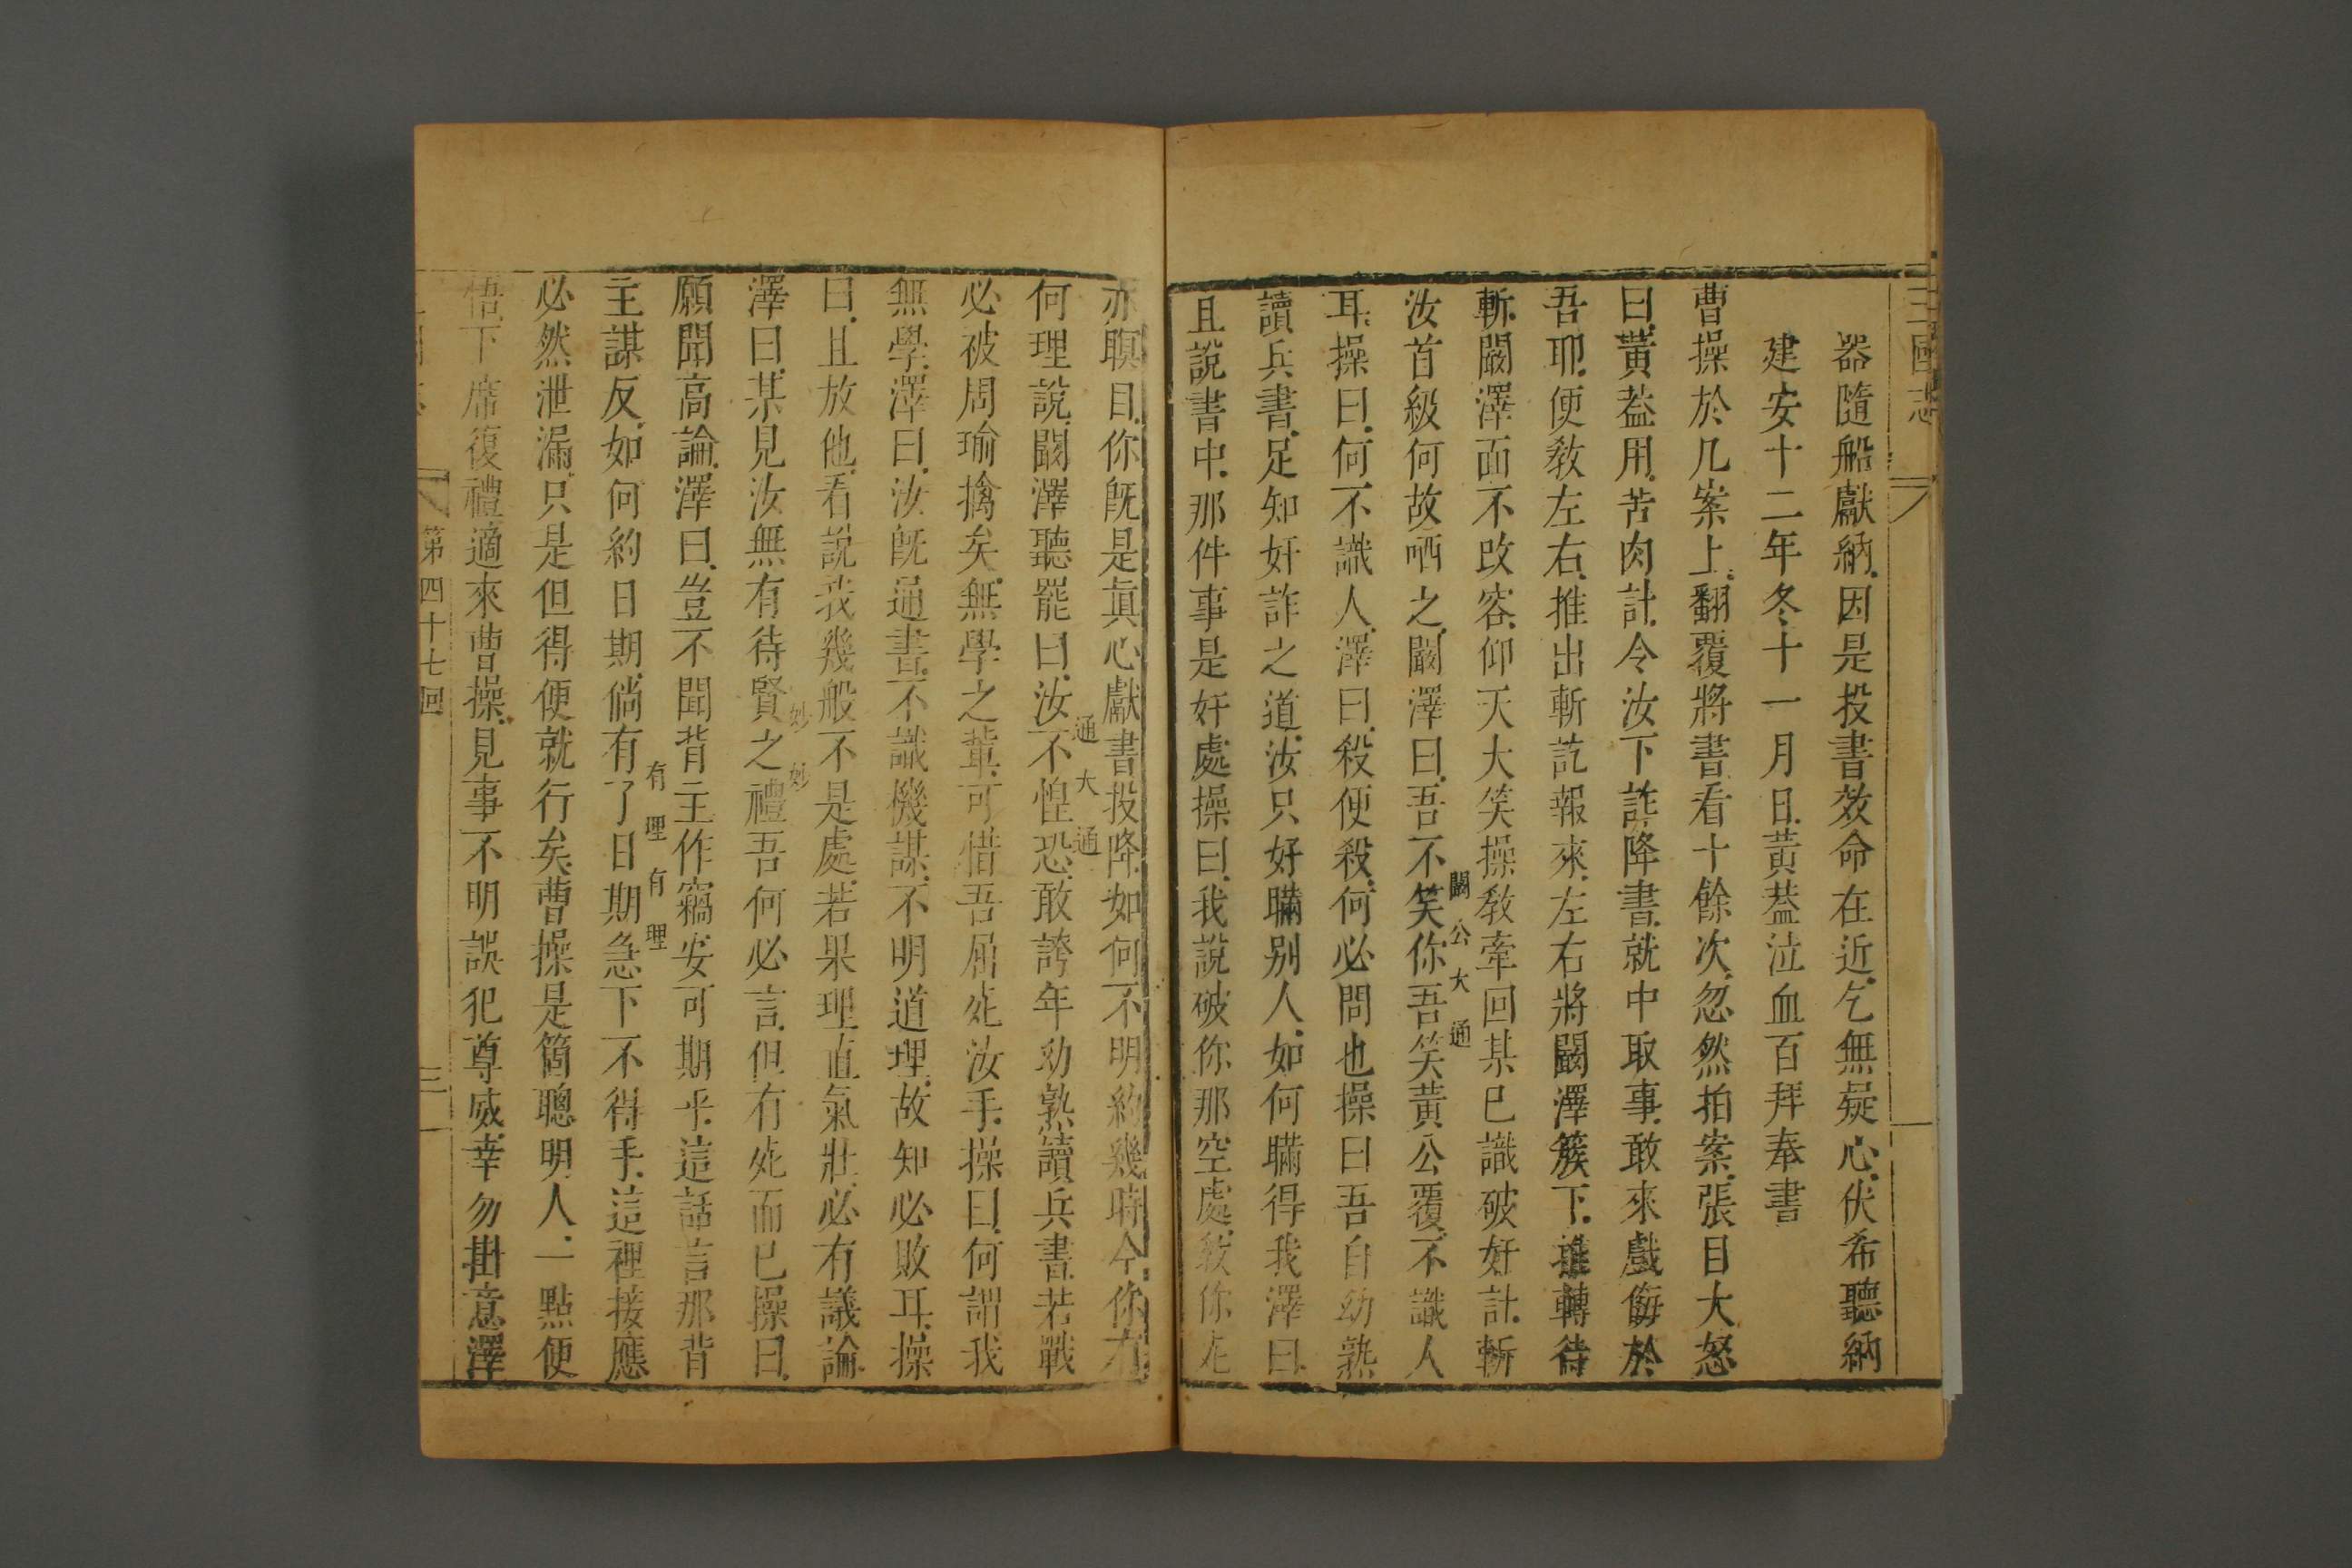 三國志
器隨船獻納因是投書效命在近乞無疑心伏希聽納
建安十二年冬十一月日黃蓋泣血百拜奉書
曹操於几案上翻覆將書看十餘次忽然拍案張目大怒
曰黃蓋用苦肉計令汝下詐降書就中取事敢來戲侮於
吾耶便教左右推出斬訖報來左右將闞澤簇下推轉待
斬闞澤面不改容仰天大笑操教牽回某已識破奸計斬
闞公大通
汝首級何故哂之闞澤曰吾不笑你吾笑黃公覆不識人
耳操曰何不識人澤曰殺便殺何必問也操曰吾自幼熟
讀兵書足知奸詐之道汝只好瞞別人如何瞞得我澤曰
且說書中那件事是奸處操曰我說破你那空處敎你死
亦瞑目你旣是真心獻書投降如何不明約幾時今你有
通大通
何理說闞澤聽罷曰汝不惶恐敢誇年幼熟讀兵書若戰
必被周瑜擒矣無學之輩可惜吾屈死汝手操曰何謂我
無學澤曰汝旣通書不識機謀不明道理故知必敗耳操
曰且放他看說我幾般不是處若果理直氣壯必有議論
妙妙
澤曰某見汝無有待賢之禮吾何必言但有死而已操曰
願聞高論澤曰豈不聞背主作竊安可期乎這話言那背
有理有理
主謀反如何約日期倘有了日期急下不得手這裡接應
必然泄漏只是但得便就行矣曹操是箇聰明人一點便
悟下席復禮適來曹操見事不明誤犯尊威幸勿掛意澤
第四十七回
三